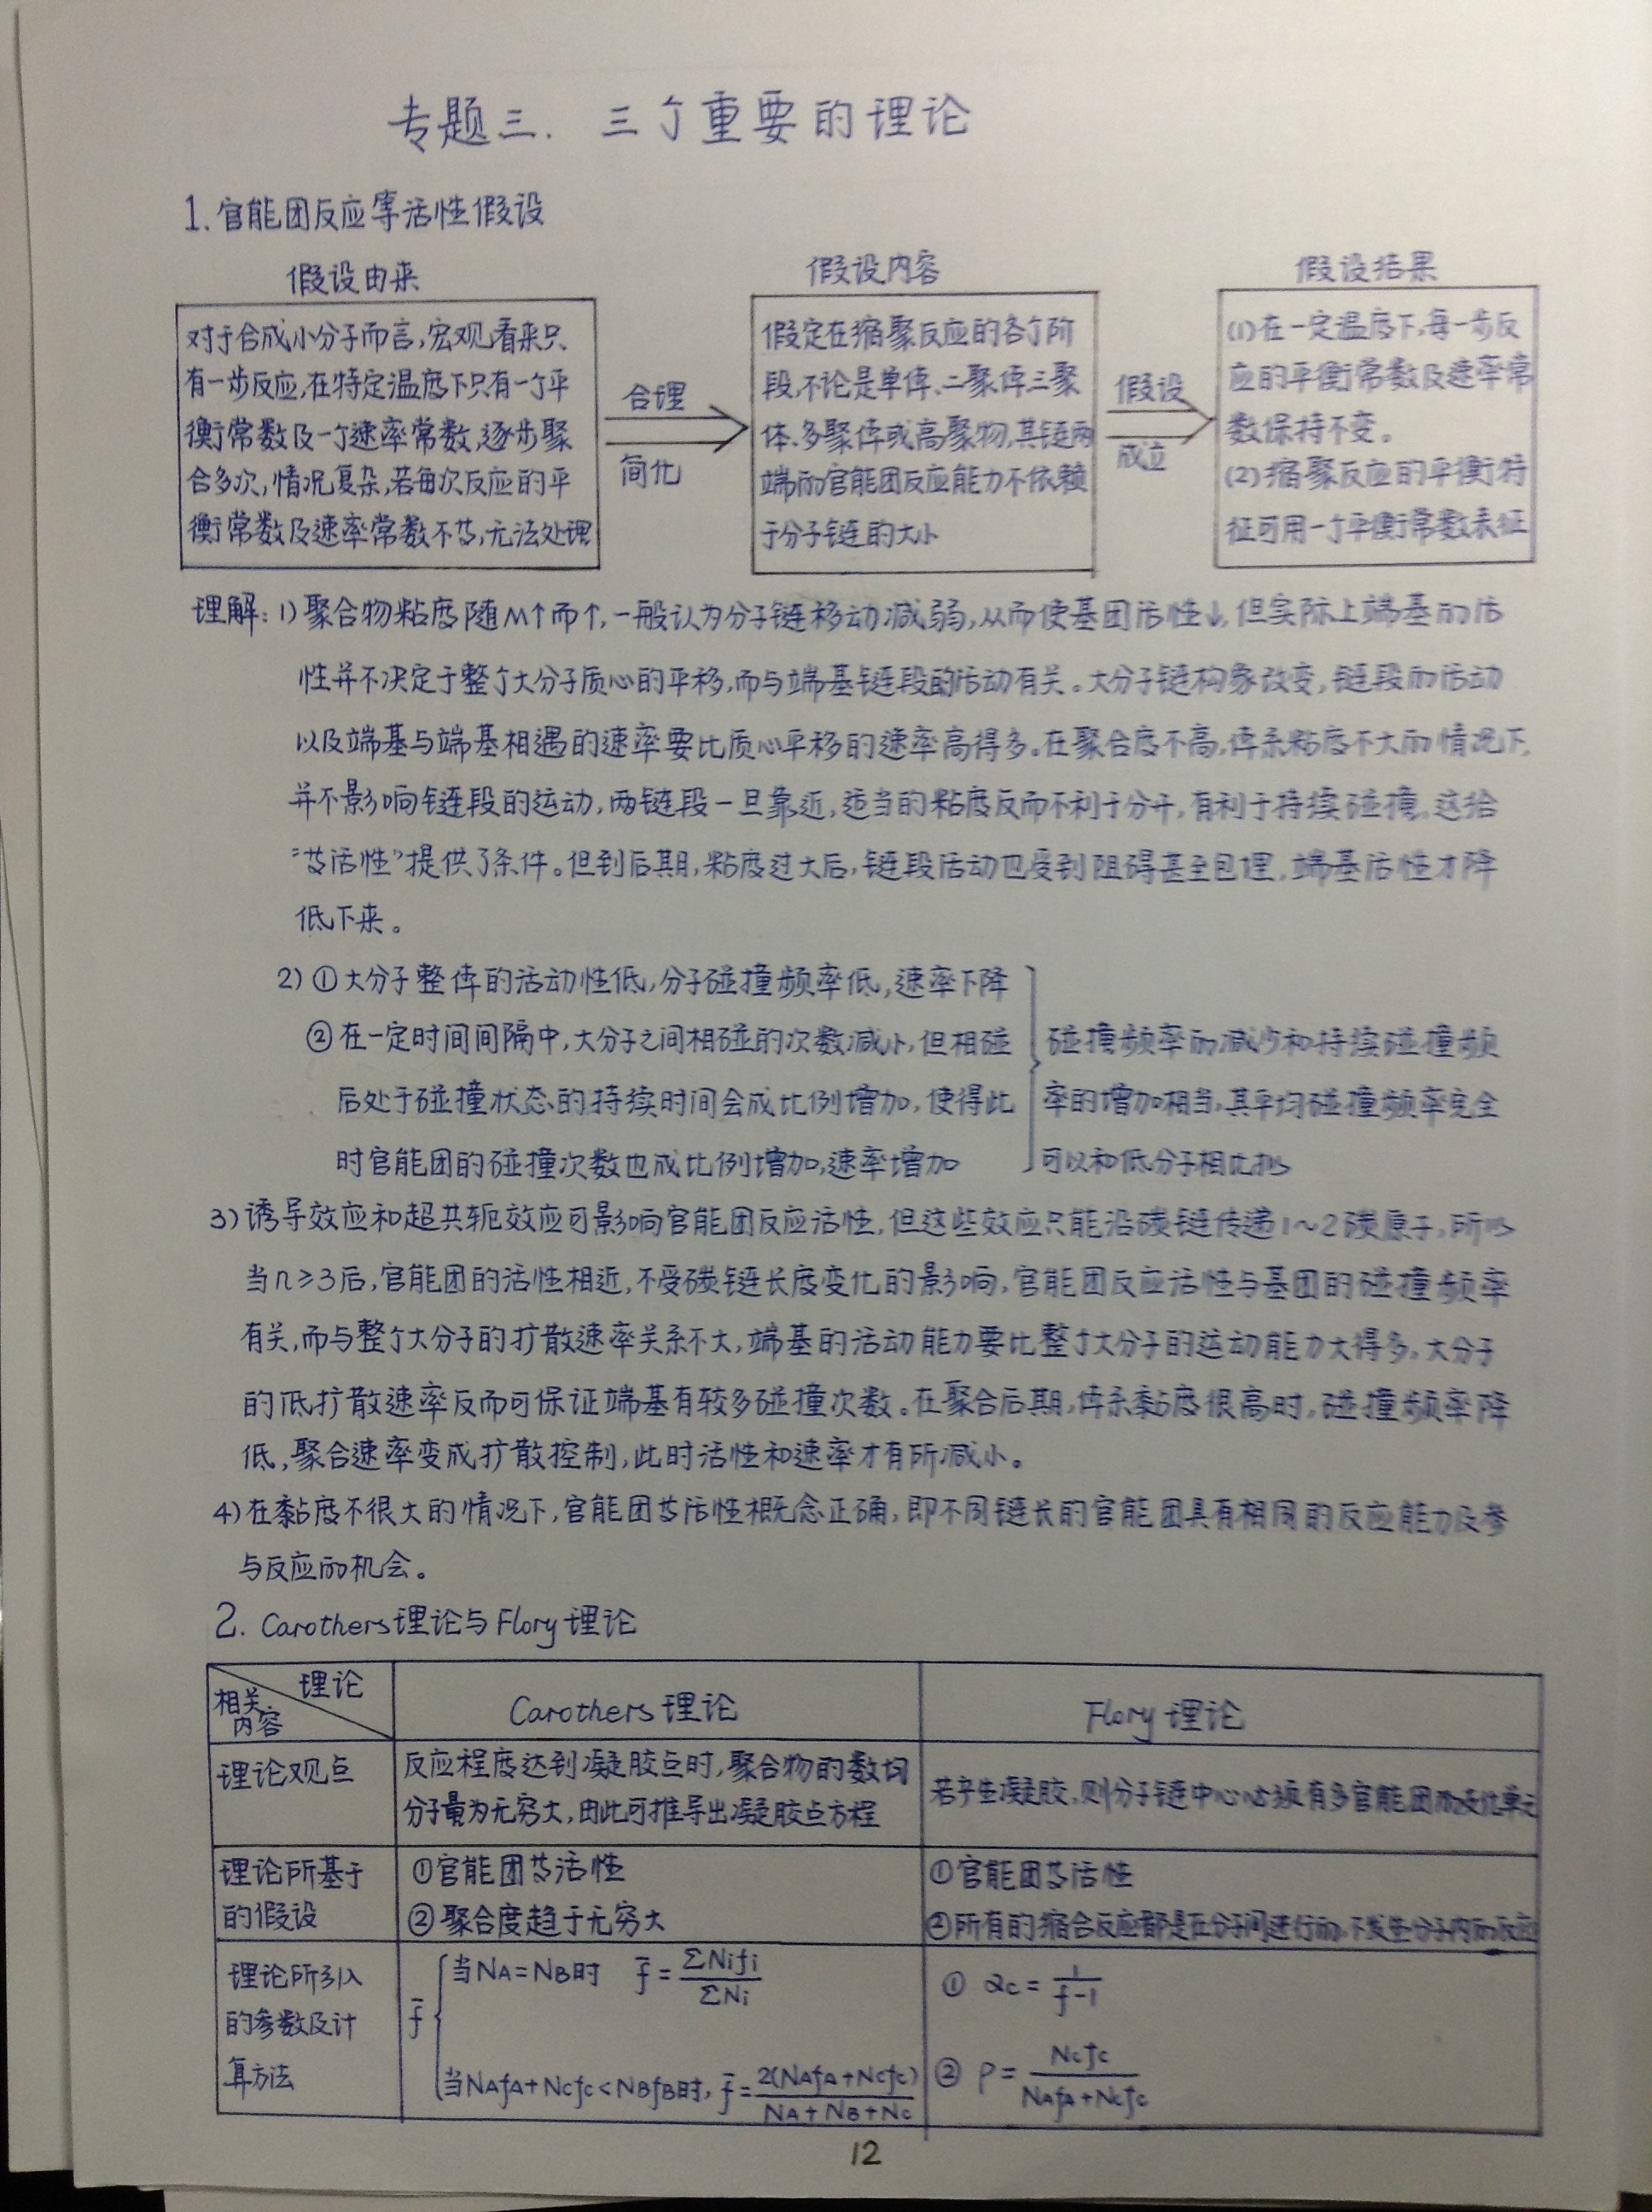 专题三. 三个重要的理论
1. 官能团反应等活性假设
假设由来
对于合成小分子而言,宏观看来只
有一步反应,在特定温度下只有一个平
衡常数及一个速率常数,逐步聚
合多次,情况复杂,若每次反应的平
衡常数及速率常数不等,无法处理
合理
简化
假设内容
假定在缩聚反应的各个阶
段,不论是单体、二聚体三聚
体、多聚体或高聚物,其链两
端的官能团反应能力不依赖
于分子链的大小
假设
成立
假设结果
(1)在一定温度下,每一步反
应的平衡常数及速率常
数保持不变。
(2)缩聚反应的平衡特
征可用一个平衡常数表征
理解: 1) 聚合物粘度随M↑而↑,一般认为分子链移动减弱,从而使基团活性↓,但实际上端基的活
性并不决定于整个大分子质心的平移,而与端基链段的活动有关。大分子链构象改变,链段的活动
以及端基与端基相遇的速率要比质心平移的速率高得多。在聚合度不高,体系粘度不大的情况下,
并不影响链段的运动,两链段一旦靠近,适当的粘度反而不利于分开,有利于持续碰撞,这给
“等活性”提供了条件。但到后期,粘度过大后,链段活动也受到阻碍甚至包埋,端基活性才降
低下来。
2) ①大分子整体的活动性低,分子碰撞频率低,速率下降
②在一定时间间隔中,大分子之间相碰的次数减小,但相碰
后处于碰撞状态的持续时间会成比例增加,使得此
时官能团的碰撞次数也成比例增加,速率增加
碰撞频率的减少和持续碰撞频
率的增加相当,其平均碰撞频率完全
可以和低分子相比拟
3) 诱导效应和超共轭效应可影响官能团反应活性,但这些效应只能沿碳链传递1~2碳原子,所以
当n≥3后,官能团的活性相近,不受碳链长度变化的影响,官能团反应活性与基团的碰撞频率
有关,而与整个大分子的扩散速率关系不大,端基的活动能力要比整个大分子的运动能力大得多。大分子
的低扩散速率反而可保证端基有较多碰撞次数。在聚合后期,体系黏度很高时,碰撞频率降
低,聚合速率变成扩散控制,此时活性和速率才有所减小。
4) 在黏度不很大的情况下,官能团等活性概念正确,即不同链长的官能团具有相同的反应能力及参
与反应的机会。
2. Carothers理论与Flory理论
理论
相关
内容
Carothers理论
Flory理论
理论观点
反应程度达到凝胶点时,聚合物的数均
分子量为无穷大,由此可推导出凝胶点方程
若产生凝胶,则分子链中心必须有多官能团的支化单元
理论所基于
的假设
①官能团等活性
②聚合度趋于无穷大
①官能团等活性
②所有的缩合反应都是在分子间进行的,不发生分子内的反应
理论所引入
的参数及计
算方法
f̄ { 当NA=NB时 f̄ = ΣNifi / ΣNi
当NAfA+NCfC<NBfB时, f̄ = 2(NAfA+NCfC) / (NA+NB+NC)
① αc = 1 / (f-1)
② ρ = NCfC / (NAfA+NCfC)
12